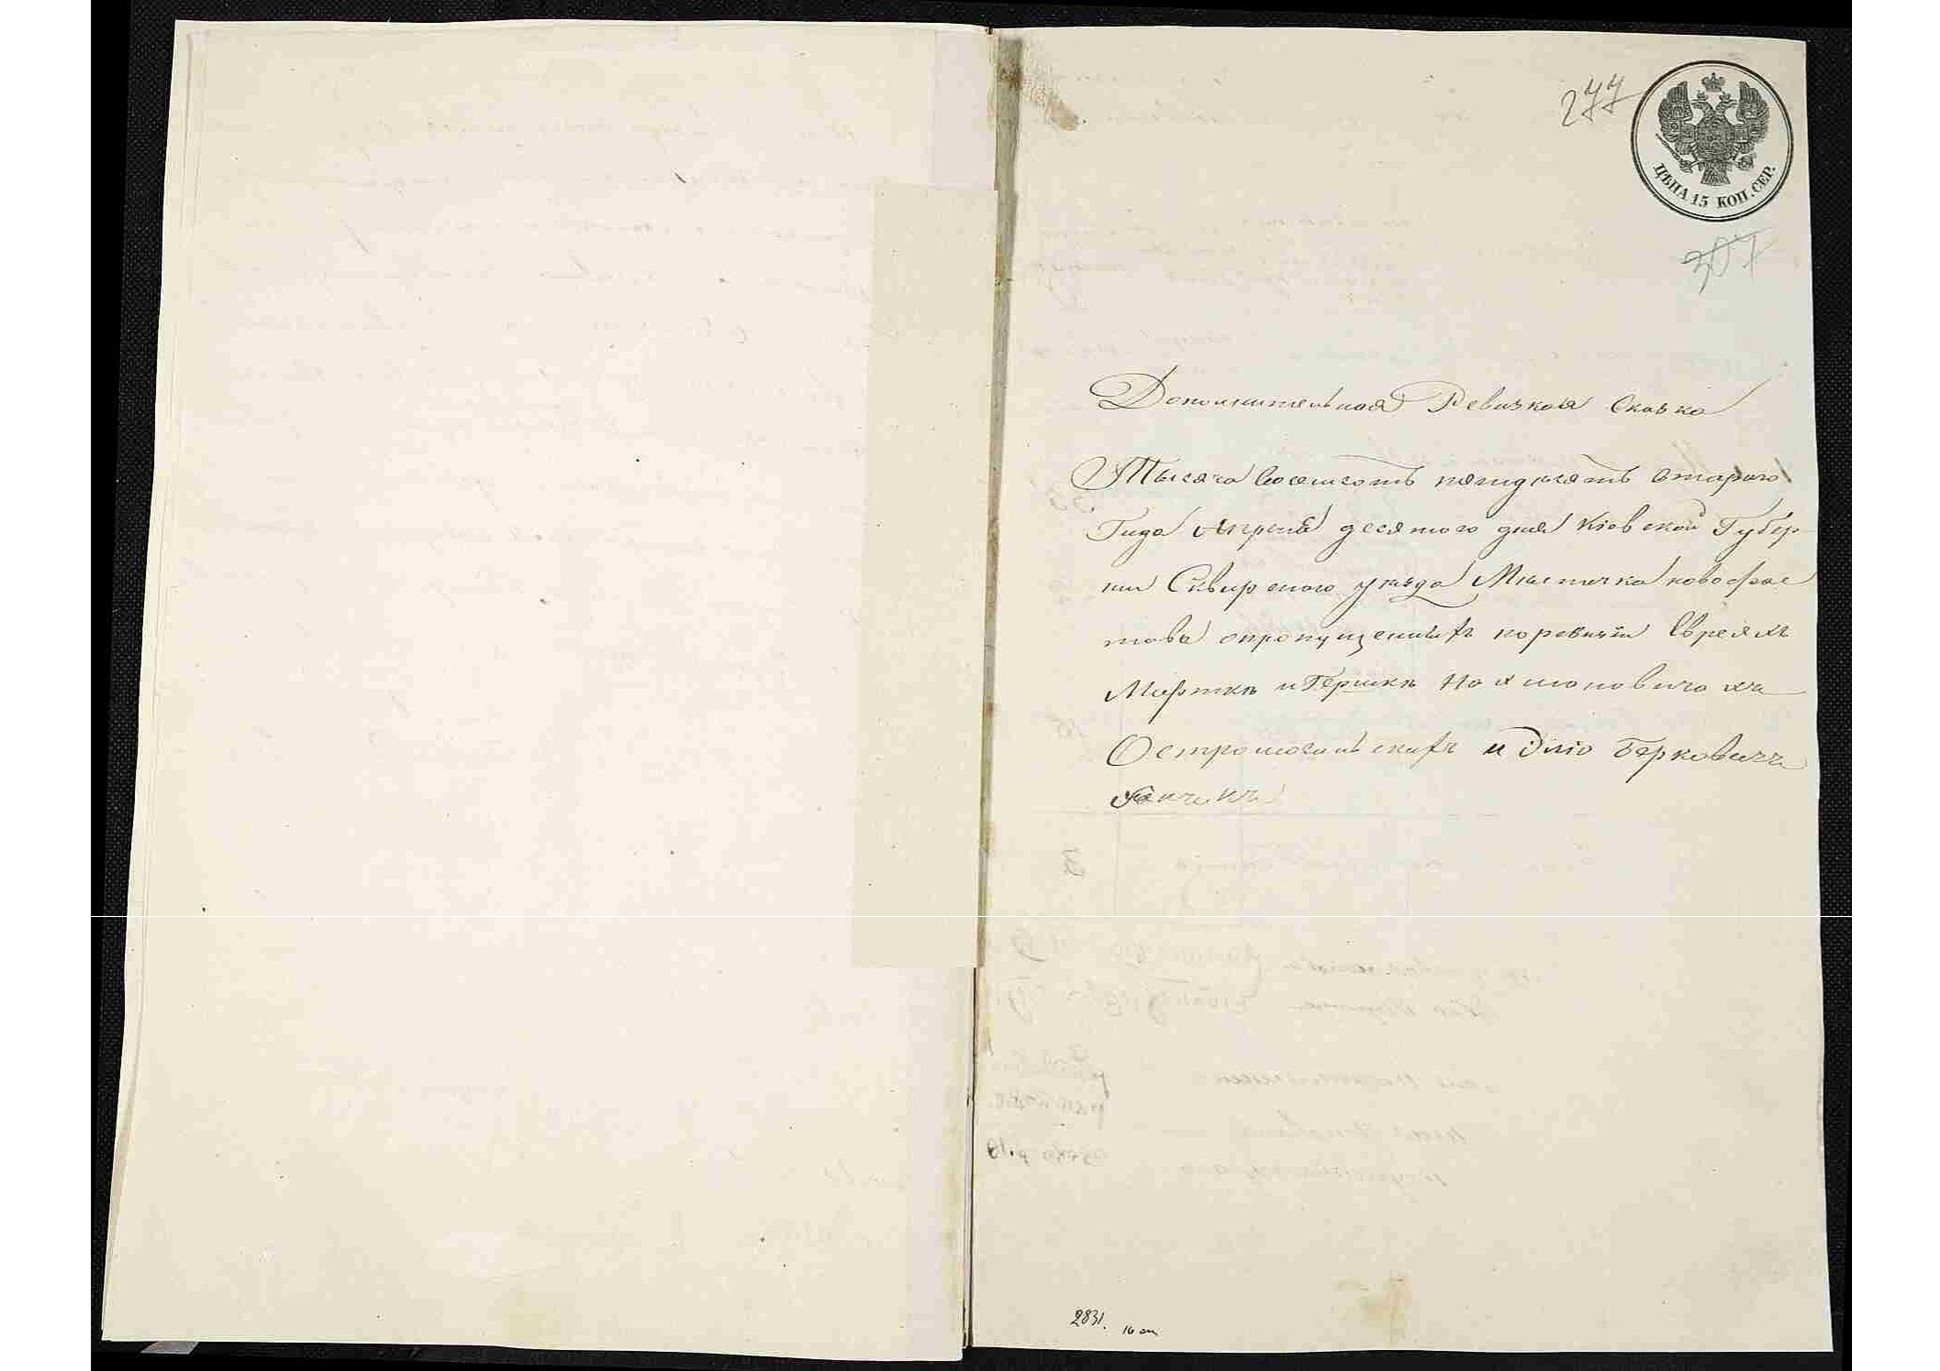 277
ЦѢНА 15 КОП. СЕР.
307
Дополнительная Ревизкая Сказка
Тысяча восемсотъ пятдесятъ втораго
Года Апреля десятого дня Кіевской Губер
ніи Сквирского уезда Мистичка новофас
това опропущенныхъ поревизіи Евреяхъ
Мортки и Гершки Нахмоновичахъ
Острогогольскихъ и Элю Берковичъ
2831.